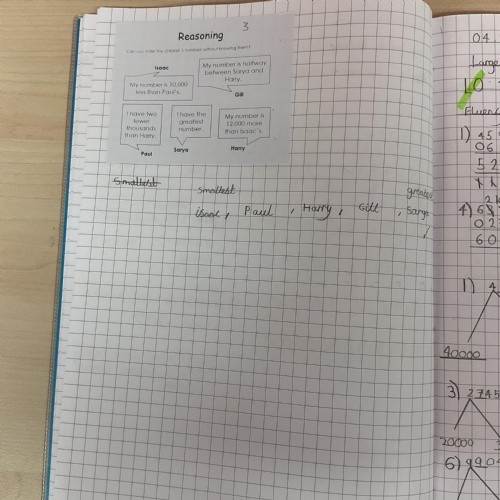 3
Reasoning
Can you order the children's numbers without knowing them?
Isaac
My number is 10,000
less than Paul's.
My number is halfway
between Sarya and
Harry.
Gill
I have two
fewer
thousands
than Harry.
Paul
I have the
greatest
number.
Sarya
My number is
12,000 more
than Isaac's.
Harry
Smallest
smallest
greatest
isaac, Paul, Harry, Gill, Sarya
04.
Large
LO
Fluenc
1) 45
06
52
4)
02
60
1) 4
40000
3) 2745
20000
6) 990